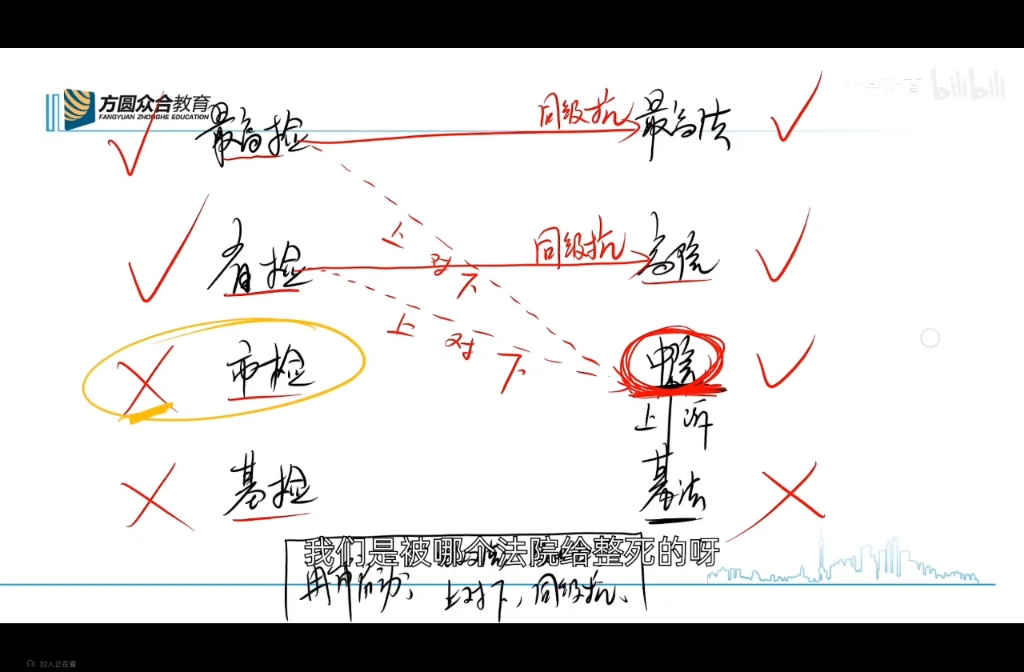 方圆众合教育
FANGYUAN ZHONGHE EDUCATION
bilibili
最高检 同级抗 最高法
上对下
省检 同级抗 高院
上对下
市检 中院
上诉
基检 基法
我们是被哪个法院给整死的呀
再审启动: 上对下, 同级抗.
32人正在看